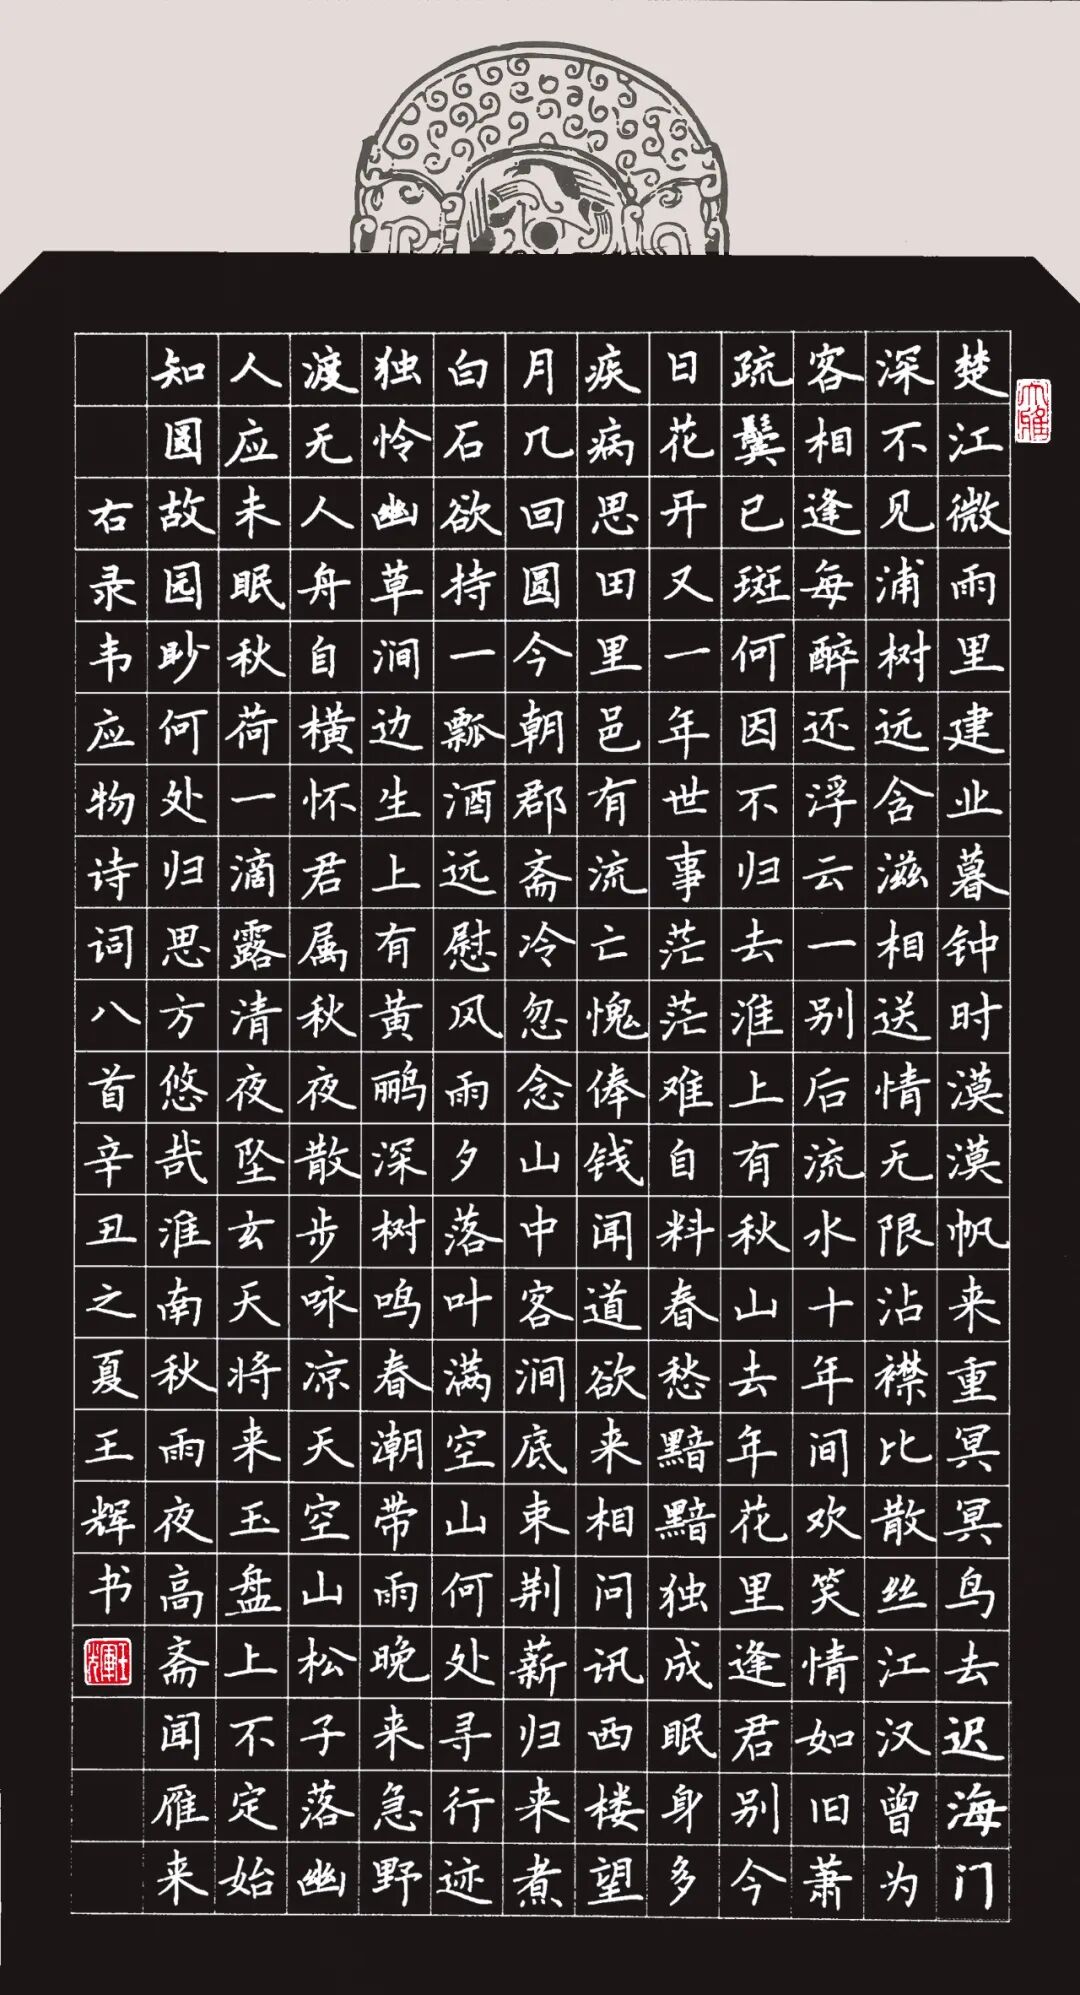 大雅
楚江微雨里建业暮钟时漠漠帆来重冥冥鸟去迟海门
深不见浦树远含滋相送情无限沾襟比散丝江汉曾为
客相逢每醉还浮云一别后流水十年间欢笑情如旧萧
疏鬓已斑何因不归去淮上有秋山去年花里逢君别今
日花开又一年世事茫茫难自料春愁黯黯独成眠身多
疾病思田里邑有流亡愧俸钱闻道欲来相问讯西楼望
月几回圆今朝郡斋冷忽念山中客涧底束荆薪归来煮
白石欲持一瓢酒远慰风雨夕落叶满空山何处寻行迹
独怜幽草涧边生上有黄鹂深树鸣春潮带雨晚来急野
渡无人舟自横怀君属秋夜散步咏凉天空山松子落幽
人应未眠秋荷一滴露清夜坠玄天将来玉盘上不定始
知圆故园眇何处归思方悠哉淮南秋雨夜高斋闻雁来
右录韦应物诗词八首辛丑之夏王辉书
王輝